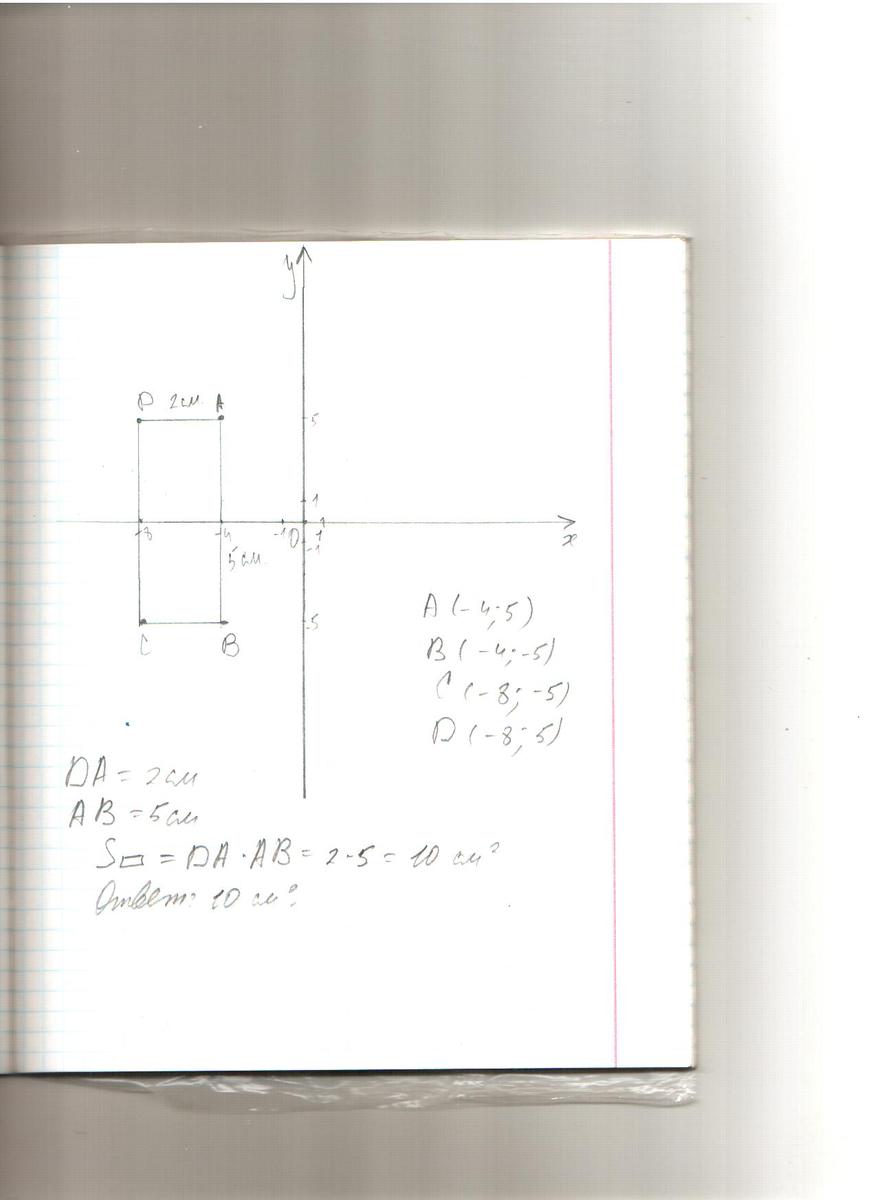 y
D 2см A
5
1
-8 -4 -1 0 1
-1
5см
-5
C B
x
A (-4; 5)
B (-4; -5)
C (-8; -5)
D (-8; 5)
DA = 2см
AB = 5см
S▭ = DA · AB = 2 · 5 = 10 см²
Ответ: 10 см²